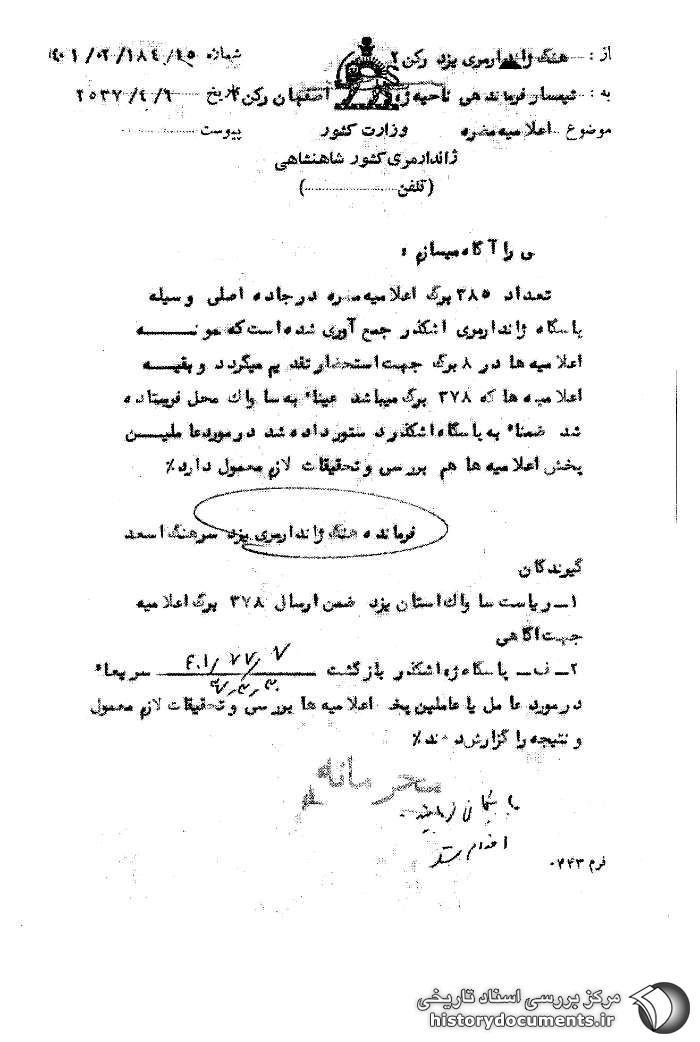 از : هنگ ژاندارمری یزد رکن ۲
شماره ۴۰۱/۰۲/۱۸۴/۴۵
به : تیمسار فرماندهی ناحیه ژ اصفهان رکن ۲
تاریخ ۲۵۳۷/۴/۶
موضوع اعلامیه مضره
وزارت کشور
پیوست
ژاندارمری کشور شاهنشاهی
(تلفن)
ی را آگاه میسازم :
تعداد ۳۸۵ برگ اعلامیه مضره در جاده اصلی وسیله
پاسگاه ژاندارمری اشکذر جمع آوری شده است که نمونه
اعلامیه ها در ۸ برگ جهت استحضار تقدیم میگردد و بقیه
اعلامیه ها که ۳۷۸ برگ میباشد عیناً به ساواک محل فرستاده
شد ضمناً به پاسگاه اشکذر دستور داده شد در مورد عاملین
پخش اعلامیه ها هم بررسی و تحقیقات لازم معمول دارد٪
فرمانده هنگ ژاندارمری یزد سرهنگ اسعد
گیرندگان
۱ــ ریاست ساواک استان یزد ضمن ارسال ۳۷۸ برگ اعلامیه
جهت آگاهی
۲ــ ف ــ پاسگاه ژ اشکذر بازگشت ۴۰۱/۷۷/۷ سریعاً
در مورد عامل یا عاملین پخ اعلامیه ها بررسی و تحقیقات لازم معمول
و نتیجه را گزارش دهند٪
محرمانه
اقدام شد
فرم ۰۷۴۳
مرکز بررسی اسناد تاریخی
historydocuments.ir